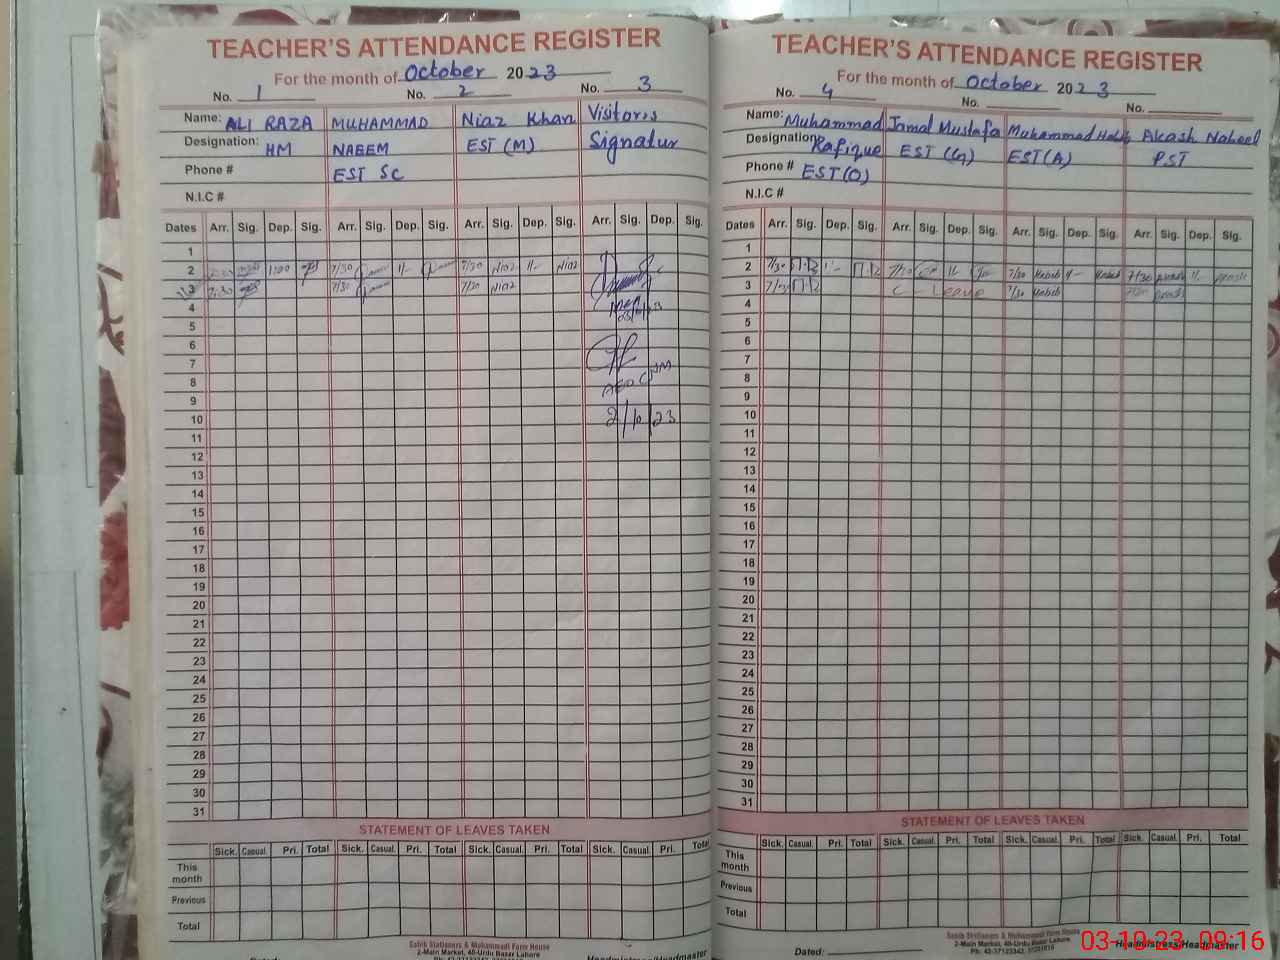 TEACHER'S ATTENDANCE REGISTER
For the month of October 2023
No. 1 No. 2 No. 3
Name: ALI RAZA MUHAMMAD Niaz Khan Visitors
Designation: HM NAEEM EST (M) Signatur
Phone # EST SC
N.I.C #
Dates Arr. Sig. Dep. Sig. Arr. Sig. Dep. Sig. Arr. Sig. Dep. Sig. Arr. Sig. Dep. Sig.
1
2 7:30 1:00 7/30 1/- 7/30 Niaz 1/- Niaz
3 7:30 7/30 7/30 Niaz
4
5
6
7
8
9
10 2/10/23
11
12
13
14
15
16
17
18
19
20
21
22
23
24
25
26
27
28
29
30
31
STATEMENT OF LEAVES TAKEN
Sick. Casual. Pri. Total Sick. Casual. Pri. Total Sick. Casual. Pri. Total Sick. Casual. Pri. Total
This month
Previous
Total
Sabih Stationers & Muhammadi Form House
2-Main Market, 40-Urdu Bazar Lahore
Headmistress/Headmaster
TEACHER'S ATTENDANCE REGISTER
For the month of October 2023
No. 4 No. No.
Name: Muhammad Jamal Mustafa Muhammad Akash Nabeel
Designation: Rafique EST (G) EST (A) PST
Phone # EST (O)
N.I.C #
Dates Arr. Sig. Dep. Sig. Arr. Sig. Dep. Sig. Arr. Sig. Dep. Sig. Arr. Sig. Dep. Sig.
1
2 7/30 1/- 7/30 1/- 7/30 1/- 7/30 1/-
3 C - Leave 7/30
4
5
6
7
8
9
10
11
12
13
14
15
16
17
18
19
20
21
22
23
24
25
26
27
28
29
30
31
STATEMENT OF LEAVES TAKEN
Sick. Casual. Pri. Total Sick. Casual. Pri. Total Sick. Casual. Pri. Total Sick. Casual. Pri. Total
This month
Previous
Total
Sabih Stationers & Muhammadi Form House
2-Main Market, 40-Urdu Bazar Lahore
Dated: Headmistress/Headmaster
03-10-23 09:16